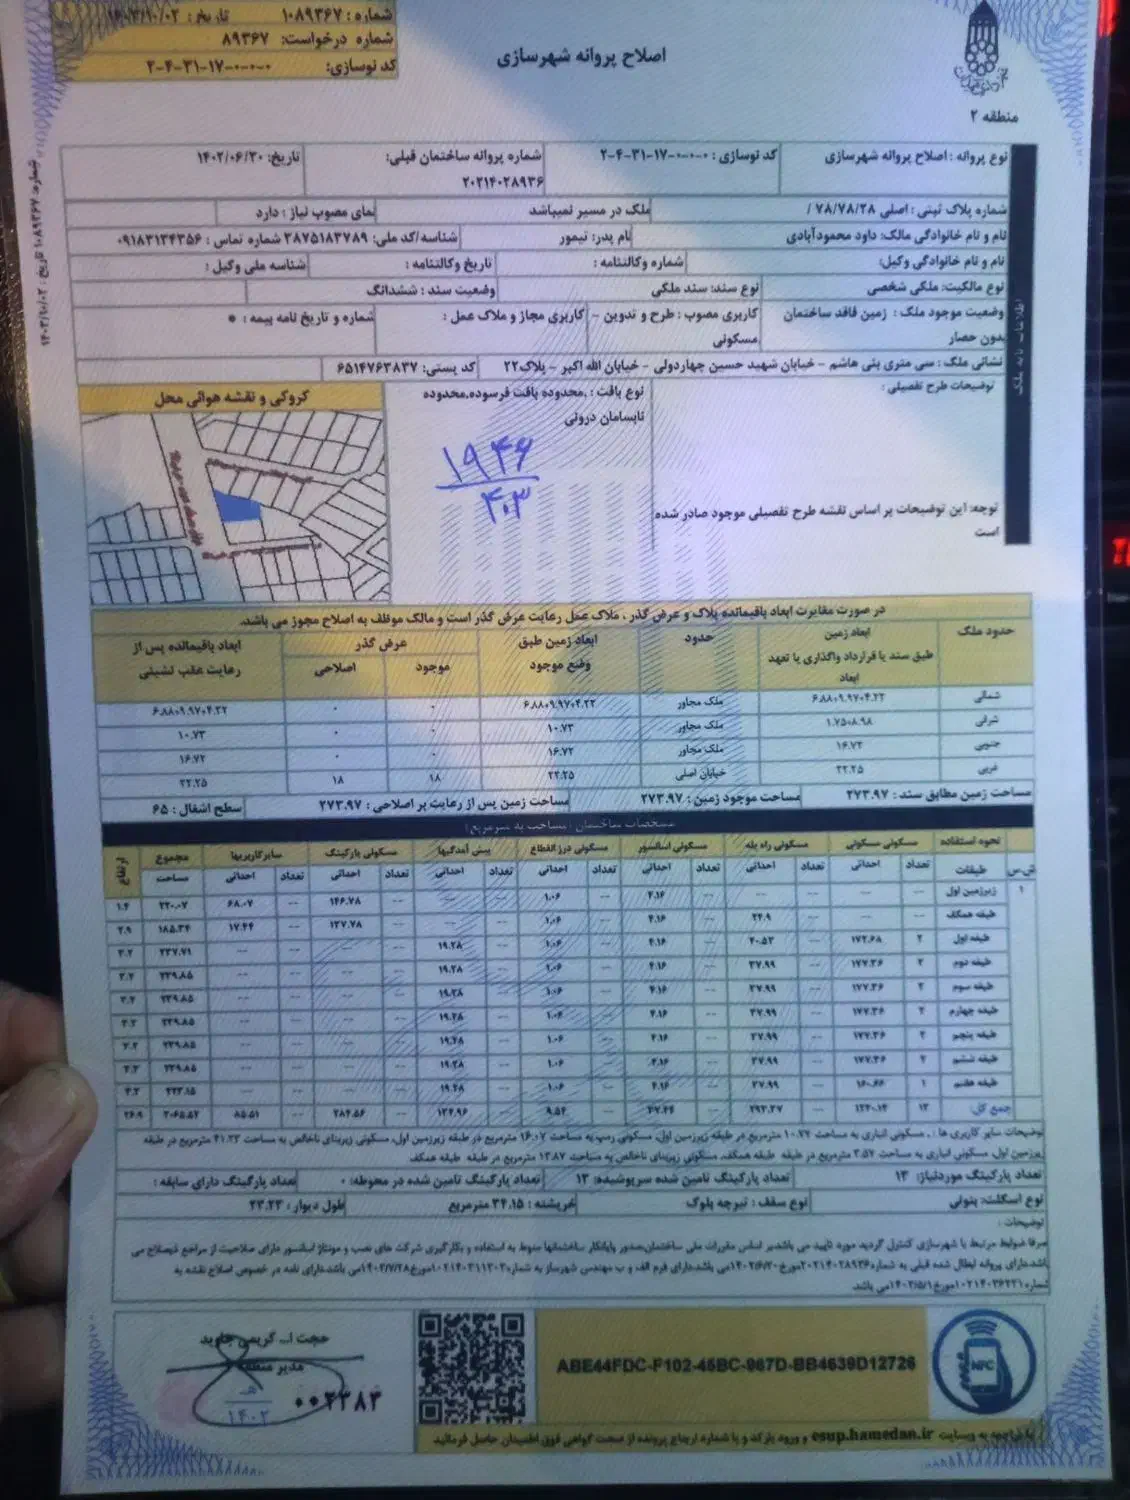 شماره : ۱۰۸۹۳۶۷ تاریخ: ۱۴۰۳/۱۰/۰۲
شماره درخواست: ۸۹۳۶۷
کد نوسازی: ۲-۴-۳۱-۱۷-۰-۰-۰
اصلاح پروانه شهرسازی
منطقه ۲
شماره: ۱۰۸۹۳۶۷ تاریخ: ۱۴۰۳/۱۰/۰۲
نوع پروانه : اصلاح پروانه شهرسازی
کد نوسازی : ۲-۴-۳۱-۱۷-۰-۰-۰
شماره پروانه ساختمان قبلی:
۲۰۲۱۴۰۲۸۹۳۶
تاریخ: ۱۴۰۲/۰۶/۳۰
شماره پلاک ثبتی : اصلی ۷۸/۷۸/۲۸ /
ملک در مسیر نمیباشد
نمای مصوب نیاز : دارد
نام و نام خانوادگی مالک: داود محمودآبادی
نام پدر: تیمور
شناسه/کد ملی: ۳۸۷۵۱۸۳۷۸۹ شماره تماس : ۰۹۱۸۳۱۳۴۳۵۶
نام و نام خانوادگی وکیل:
شماره وکالتنامه :
تاریخ وکالتنامه :
شناسه ملی وکیل :
نوع مالکیت: ملکی شخصی
نوع سند: سند ملکی
وضعیت سند : ششدانگ
وضعیت موجود ملک : زمین فاقد ساختمان
بدون حصار
کاربری مصوب : طرح و تدوین -
مسکونی
کاربری مجاز و ملاک عمل :
شماره و تاریخ نامه بیمه : *
نشانی ملک : سی متری بنی هاشم - خیابان شهید حسین چهاردولی - خیابان الله اکبر - پلاک۲۲
کد پستی: ۶۵۱۴۷۶۳۸۳۷
توضیحات طرح تفصیلی :
نوع بافت : ,محدوده بافت فرسوده,محدوده
نابسامان درونی
کروکی و نقشه هوائی محل
۱۹۴۶
۴۰۳
توجه: این توضیحات بر اساس نقشه طرح تفصیلی موجود صادر شده
است
اطلاعات پایه ملک
در صورت مغایرت ابعاد باقیمانده پلاک و عرض گذر ، ملاک عمل رعایت عرض گذر است و مالک موظف به اصلاح مجوز می باشد.
حدود ملک
ابعاد زمین
طبق سند یا قرارداد واگذاری یا تعهد
ابعاد
حدود
ابعاد زمین طبق
وضع موجود
عرض گذر
موجود اصلاحی
ابعاد باقیمانده پس از
رعایت عقب نشینی
شمالی ۶.۸۸۰۹.۹۷۰۴.۲۲ ملک مجاور ۶.۸۸۰۹.۹۷۰۴.۲۲ ۰ ۰ ۶.۸۸۰۹.۹۷۰۴.۲۲
شرقی ۱.۷۵۰۸.۹۸ ملک مجاور ۱۰.۷۳ ۰ ۰ ۱۰.۷۳
جنوبی ۱۶.۷۲ ملک مجاور ۱۶.۷۲ ۰ ۰ ۱۶.۷۲
غربی ۲۲.۲۵ خیابان اصلی ۲۲.۲۵ ۱۸ ۱۸ ۲۲.۲۵
مساحت زمین مطابق سند : ۲۷۳.۹۷ مساحت موجود زمین : ۲۷۳.۹۷ مساحت زمین پس از رعایت بر اصلاحی : ۲۷۳.۹۷ سطح اشغال : ۶۵
مشخصات ساختمان (مساحت به مترمربع)
نحوه استفاده مسکونی مسکونی مسکونی راه پله مسکونی آسانسور مسکونی درز انقطاع پیش آمدگیها مسکونی پارکینگ سایرکاربریها مجموع ارتفاع
ش.س طبقات تعداد احداثی تعداد احداثی تعداد احداثی تعداد احداثی تعداد احداثی تعداد احداثی تعداد احداثی مساحت
۱ زیرزمین اول --- --- --- --- --- ۴.۱۶ --- ۱.۰۶ --- --- --- ۱۴۶.۷۸ --- ۶۸.۰۷ ۲۲۰.۰۷ ۱.۴
طبقه همکف --- --- --- ۲۴.۹ --- ۴.۱۶ --- ۱.۰۶ --- --- --- ۱۳۷.۷۸ --- ۱۷.۴۴ ۱۸۵.۳۴ ۲.۹
طبقه اول ۲ ۱۷۲.۶۸ --- ۴۰.۵۳ --- ۴.۱۶ --- ۱.۰۶ --- ۱۹.۲۸ --- --- --- --- ۲۳۷.۷۱ ۳.۲
طبقه دوم ۲ ۱۷۷.۳۶ --- ۳۷.۹۹ --- ۴.۱۶ --- ۱.۰۶ --- ۱۹.۲۸ --- --- --- --- ۲۳۹.۸۵ ۳.۲
طبقه سوم ۲ ۱۷۷.۳۶ --- ۳۷.۹۹ --- ۴.۱۶ --- ۱.۰۶ --- ۱۹.۲۸ --- --- --- --- ۲۳۹.۸۵ ۳.۲
طبقه چهارم ۲ ۱۷۷.۳۶ --- ۳۷.۹۹ --- ۴.۱۶ --- ۱.۰۶ --- ۱۹.۲۸ --- --- --- --- ۲۳۹.۸۵ ۳.۲
طبقه پنجم ۲ ۱۷۷.۳۶ --- ۳۷.۹۹ --- ۴.۱۶ --- ۱.۰۶ --- ۱۹.۲۸ --- --- --- --- ۲۳۹.۸۵ ۳.۲
طبقه ششم ۲ ۱۷۷.۳۶ --- ۳۷.۹۹ --- ۴.۱۶ --- ۱.۰۶ --- ۱۹.۲۸ --- --- --- --- ۲۳۹.۸۵ ۳.۲
طبقه هفتم ۱ ۱۶۰.۶۶ --- ۳۷.۹۹ --- ۴.۱۶ --- ۱.۰۶ --- ۱۹.۲۸ --- --- --- --- ۲۲۳.۱۵ ۳.۲
جمع کل: ۱۳ ۱۲۴۰.۱۴ --- ۲۹۳.۳۷ --- ۳۷.۴۴ --- ۹.۵۴ --- ۱۳۴.۹۶ --- ۲۸۴.۵۶ --- ۸۵.۵۱ ۲۰۶۵.۵۲ ۲۶.۹
توضیحات سایر کاربری ها : . مسکونی انباری به مساحت ۱۰.۷۲ مترمربع در طبقه زیرزمین اول، مسکونی رمپ به مساحت ۱۶.۰۷ مترمربع در طبقه زیرزمین اول، مسکونی زیربنای ناخالص به مساحت ۴۱.۲۳ مترمربع در طبقه
زیرزمین اول، مسکونی انباری به مساحت ۳.۵۷ مترمربع در طبقه طبقه همکف، مسکونی زیربنای ناخالص به مساحت ۱۳.۸۷ مترمربع در طبقه طبقه همکف
تعداد پارکینگ موردنیاز: ۱۳ تعداد پارکینگ تامین شده سرپوشیده: ۱۳ تعداد پارکینگ تامین شده در محوطه: ۰ تعداد پارکینگ دارای سابقه :
نوع اسکلت: بتونی نوع سقف : تیرچه بلوک خرپشته : ۳۴.۱۵ مترمربع طول دیوار : ۲۳.۲۳
توضیحات :
حجت اله کریمی جاوید
مدیر منطقه
۰۰۲۳۸۳
۱۴۰۲
NFC
ABE44FDC-F102-45BC-967D-BB4639D12726
با مراجعه به وبسایت esup.hamedan.ir و ورود بارکد و یا شماره ارجاع پرونده از صحت گواهی فوق اطمینان حاصل فرمائید